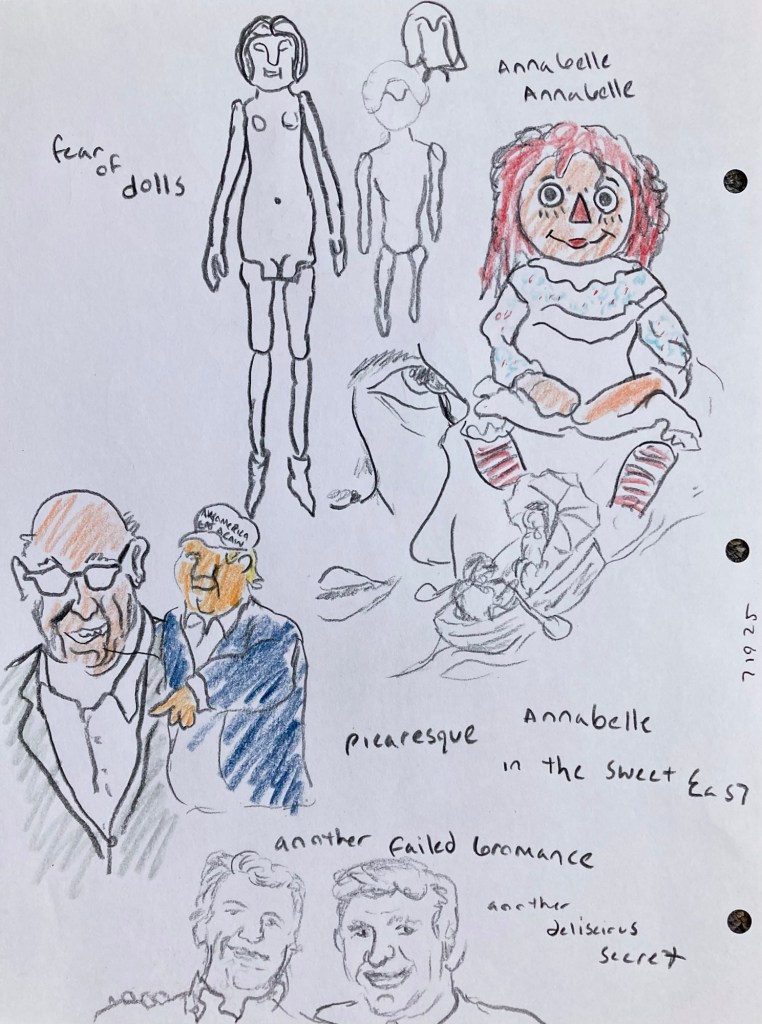 Annabelle
Annabelle
fear
of
dolls
AMERICA
AGAIN
71925
picaresque
Annabelle
in the sweet East
another failed bromance
another
deliscius
secret